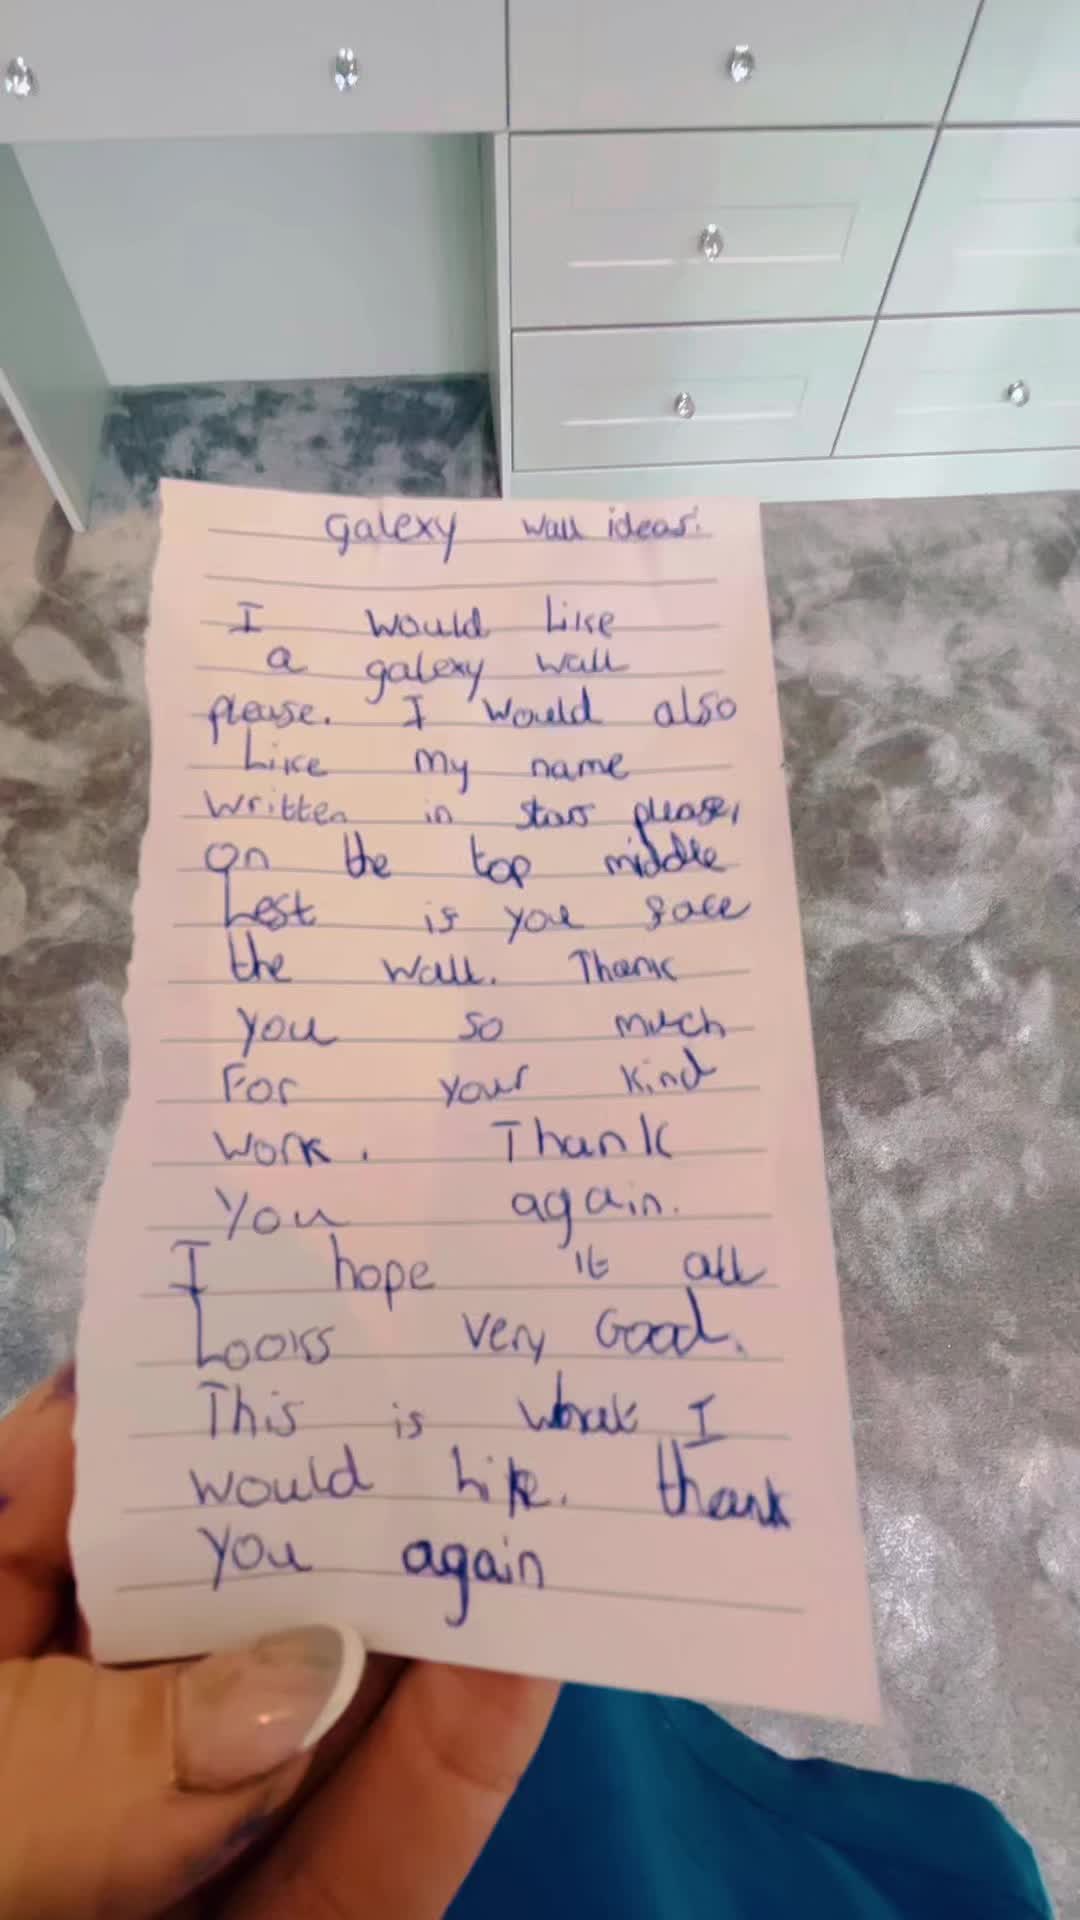 galexy wall ideas:
I would Like
a galexy wall
please. I would also
Like My name
written in stars please,
on the top middle
Lest is you face
the wall. Thank
you so much
For your kind
work. Thank
You again.
I hope it all
Looks very Good.
This is what I
would Like. thank
you again